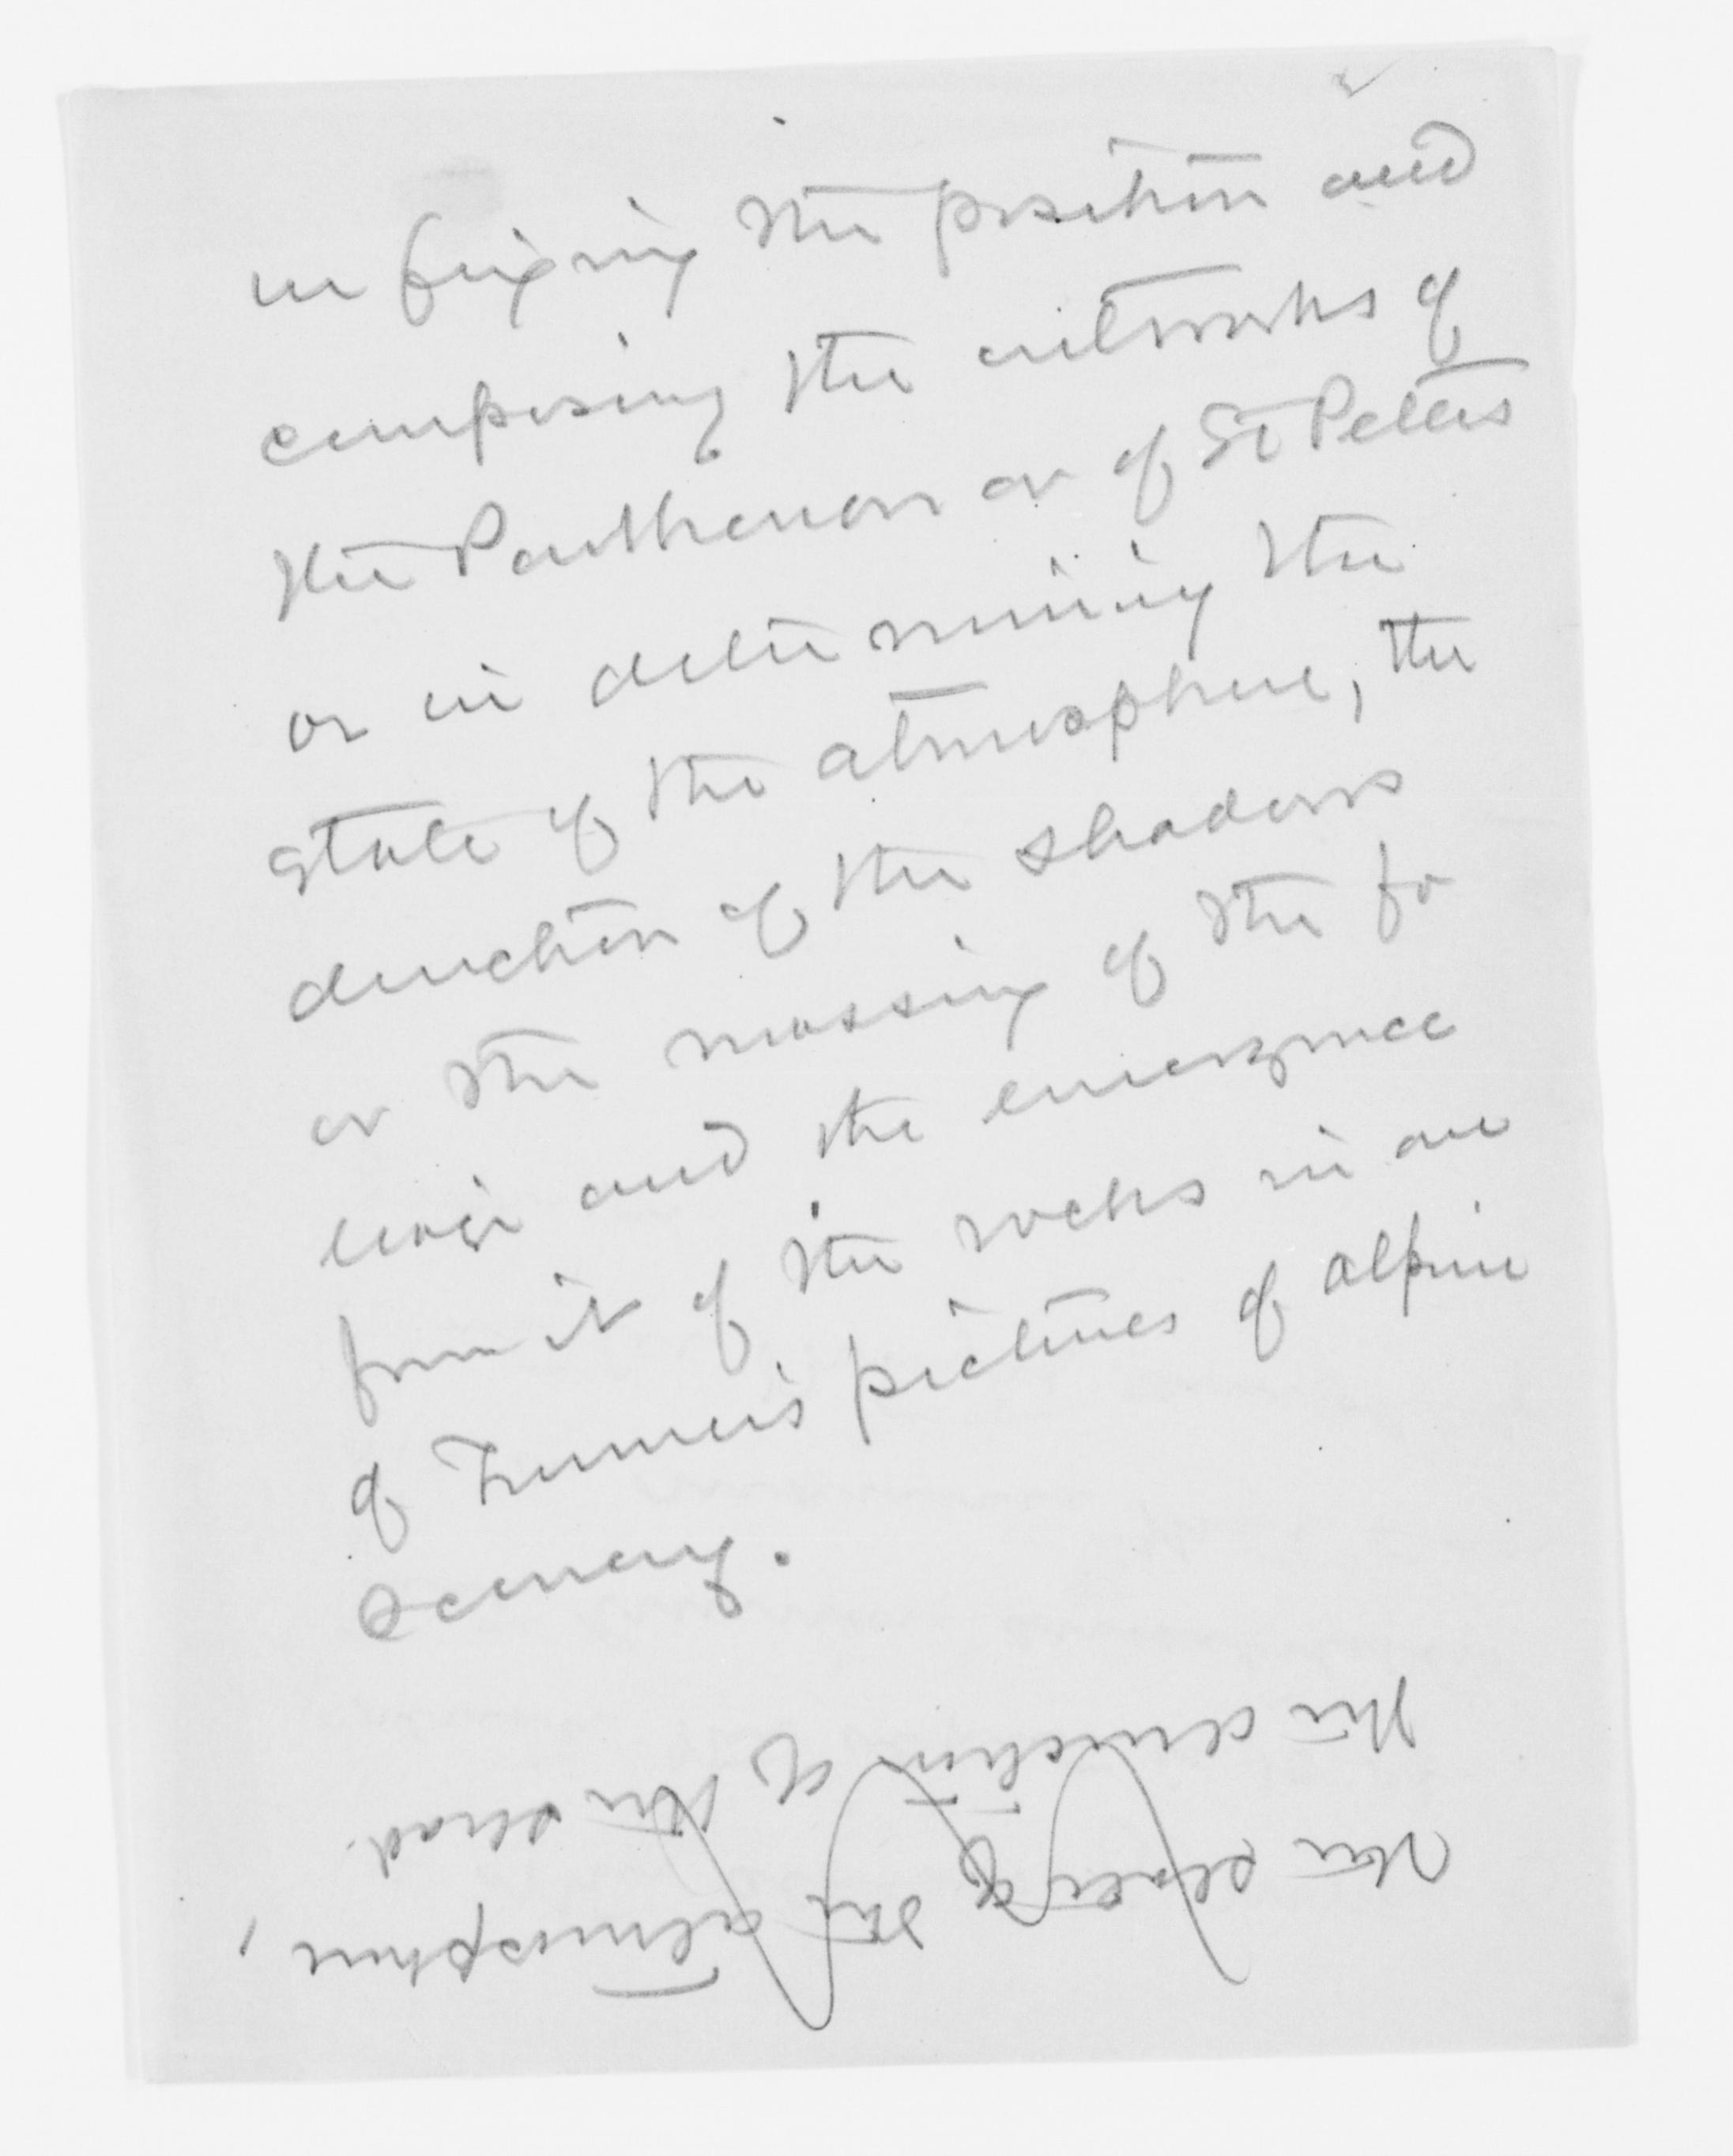 in fixing the position and
composing the outworks of
the Parthenon or of St Peters
or in determining the
state of the atmosphere, the
direction of the shadows
or the massing of the fo
liage and the emergence
from it of the rocks in one
of Turner's pictures of alpine
scenery.
The state of the atmosphere,
the direction of the shad.